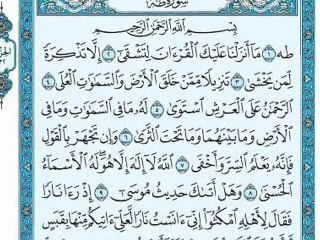 سُورَةُ طه
بِسْمِ اللَّهِ الرَّحْمَٰنِ الرَّحِيمِ
طه ١ مَا أَنزَلْنَا عَلَيْكَ الْقُرْءَانَ لِتَشْقَىٰ ٢ إِلَّا تَذْكِرَةً
لِّمَن يَخْشَىٰ ٣ تَنزِيلًا مِّمَّنْ خَلَقَ الْأَرْضَ وَالسَّمَٰوَٰتِ الْعُلَى ٤
الرَّحْمَٰنُ عَلَى الْعَرْشِ اسْتَوَىٰ ٥ لَهُ مَا فِي السَّمَٰوَٰتِ وَمَا فِي
الْأَرْضِ وَمَا بَيْنَهُمَا وَمَا تَحْتَ الثَّرَىٰ ٦ وَإِن تَجْهَرْ بِالْقَوْلِ
فَإِنَّهُ يَعْلَمُ السِّرَّ وَأَخْفَى ٧ اللَّهُ لَا إِلَٰهَ إِلَّا هُوَ لَهُ الْأَسْمَاءُ
الْحُسْنَىٰ ٨ وَهَلْ أَتَىٰكَ حَدِيثُ مُوسَىٰ ٩ إِذْ رَءَا نَارًا
فَقَالَ لِأَهْلِهِ امْكُثُوا إِنِّي ءَانَسْتُ نَارًا لَّعَلِّي ءَاتِيكُم مِّنْهَا بِقَبَسٍ